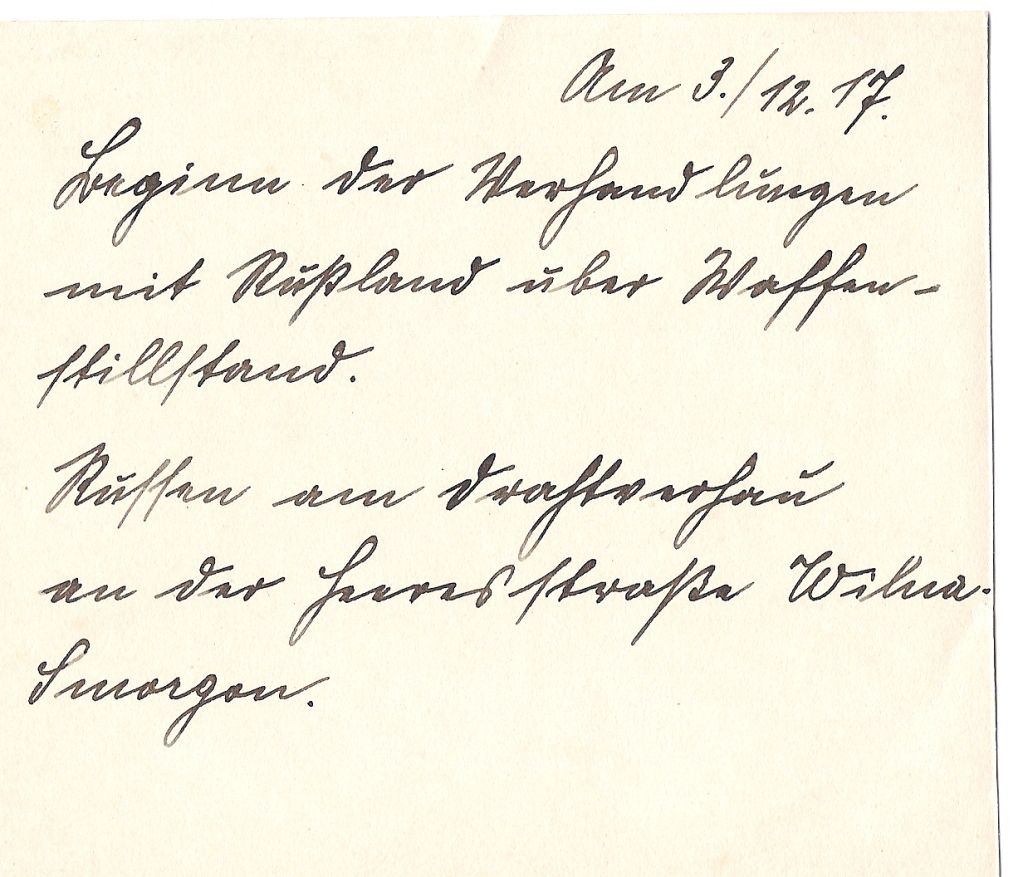 Am 3./12. 17.
Beginn der Verhandlungen
mit Rußland über Waffen-
stillstand.
Russen am Drahtverhau
an der Heeresstraße Wilna-
Smorgon.